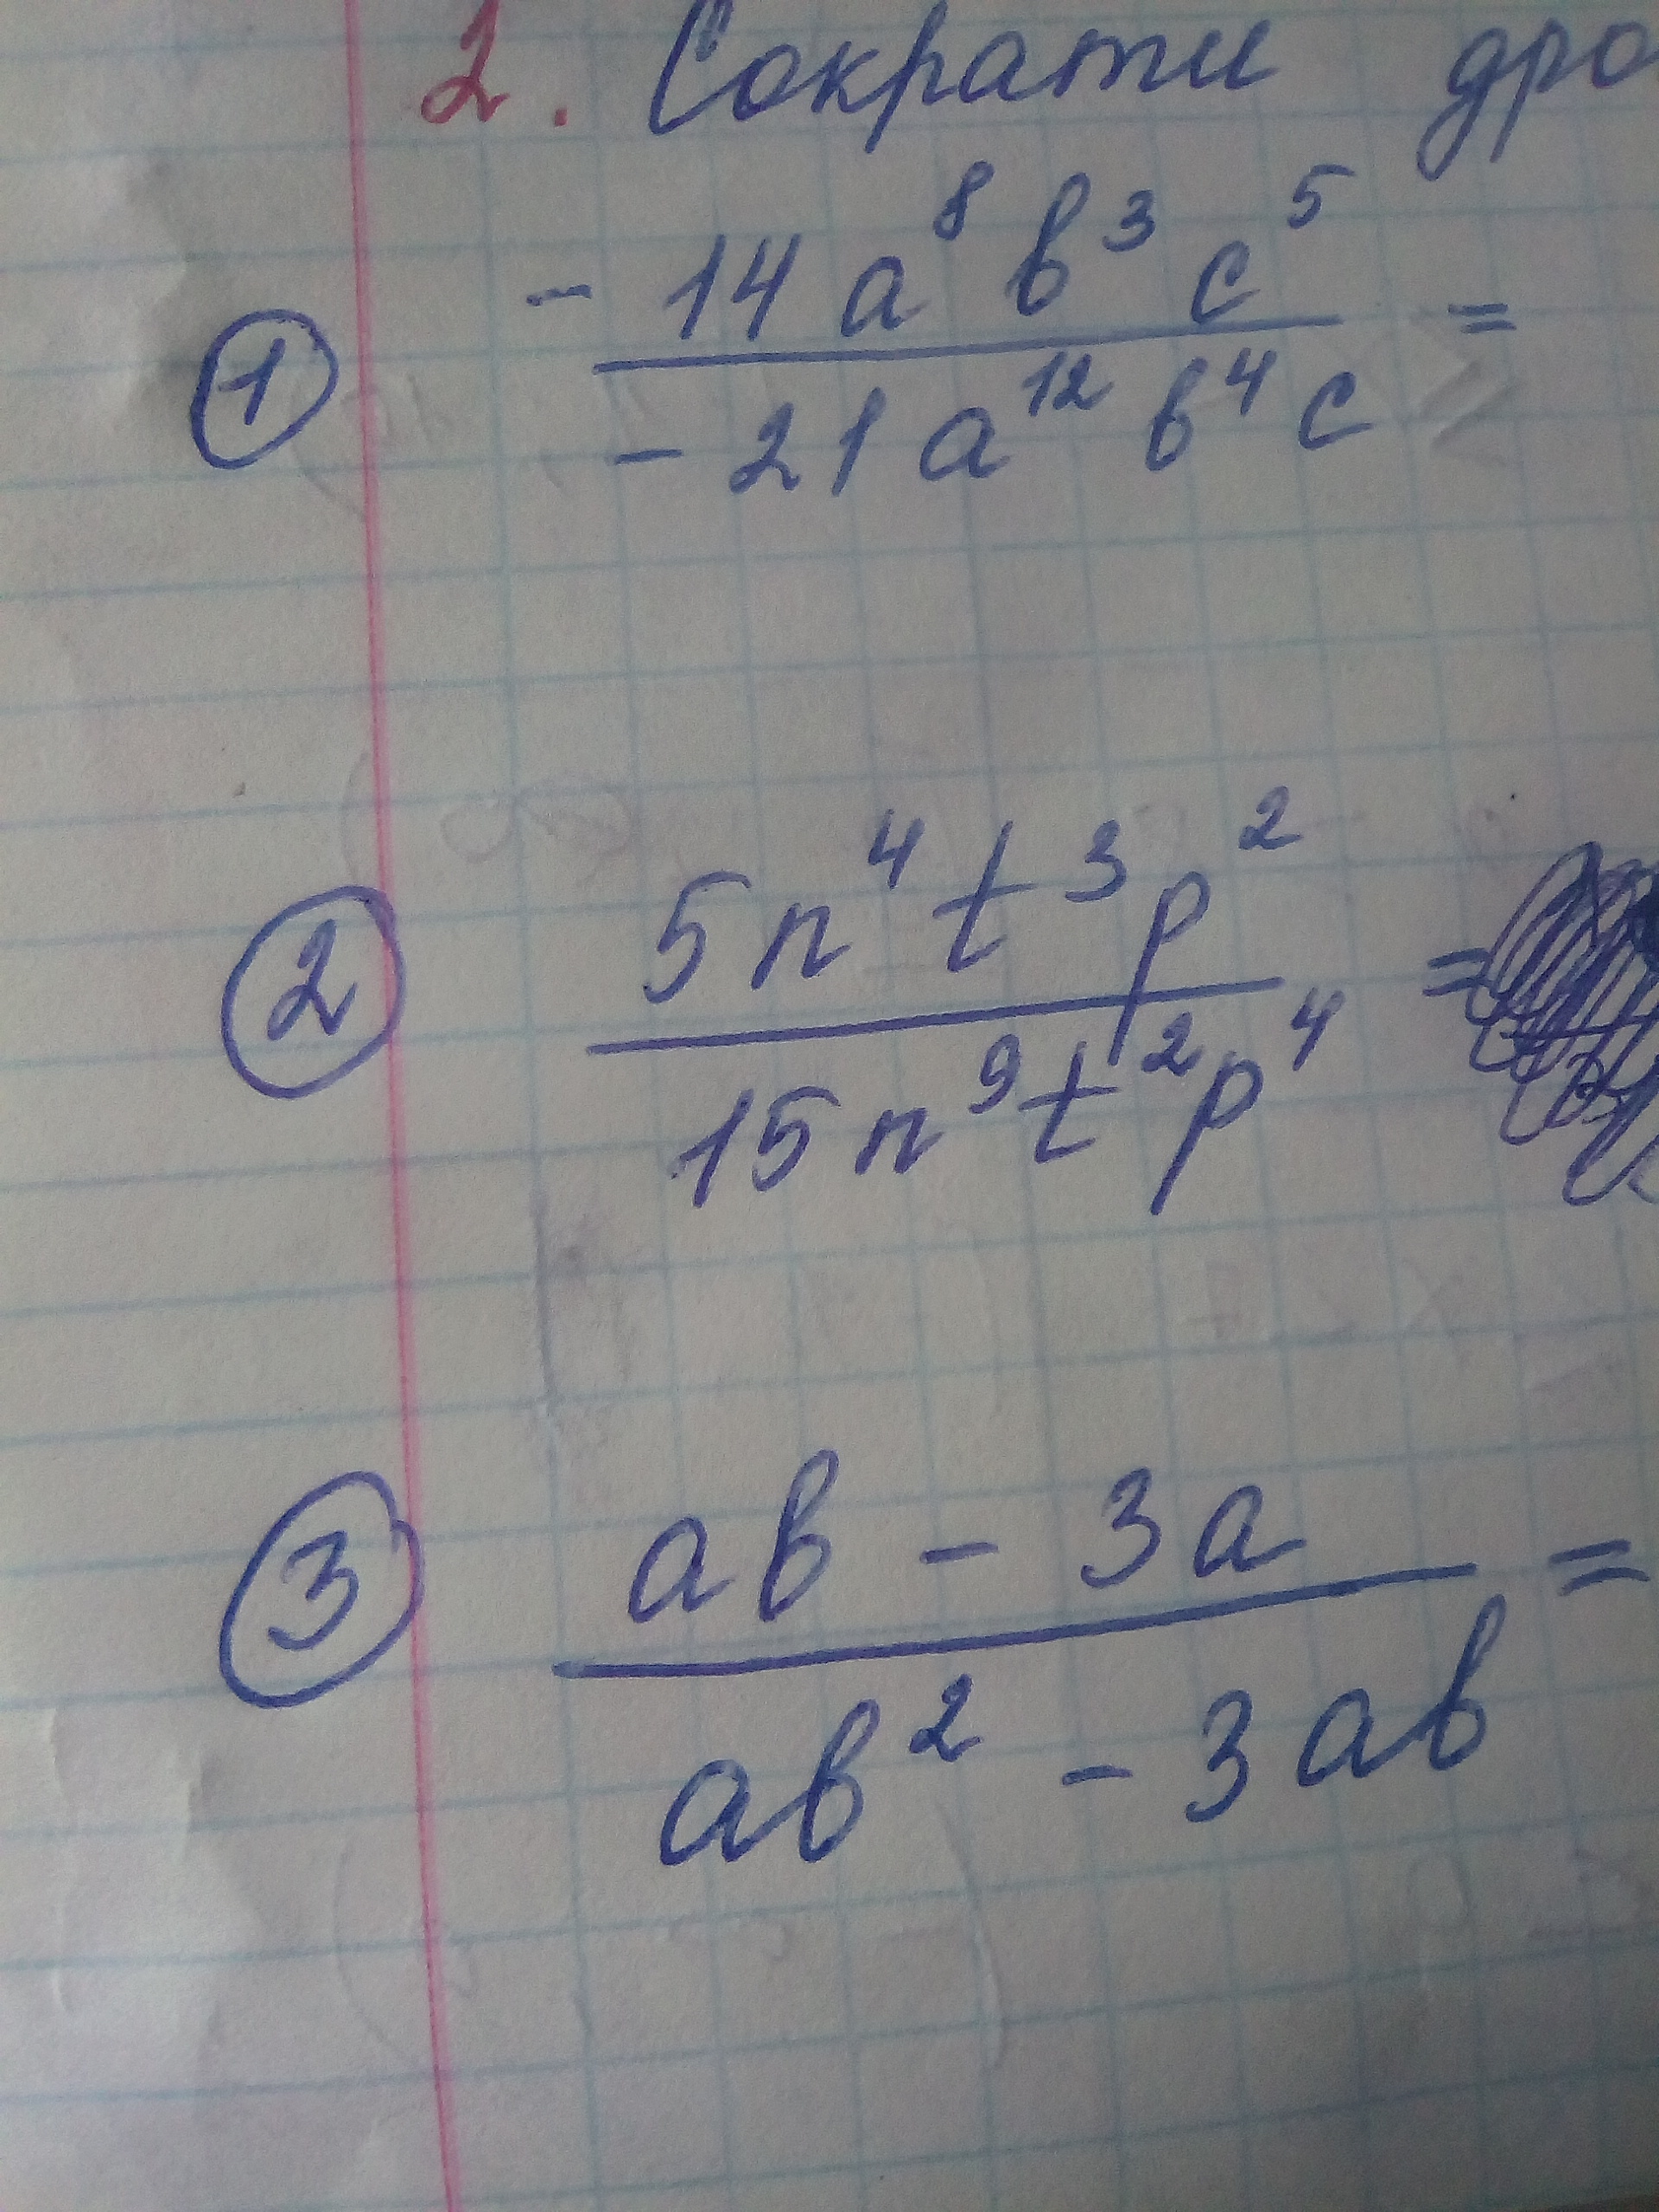 2. Сократи дро
① -14a⁸b³c⁵ / -21a¹²b⁴c =
② 5n⁴t³p² / 15n⁹t²p⁴ =
③ ab - 3a / ab² - 3ab =